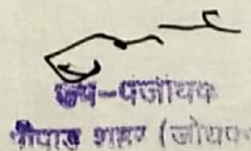 उप-पंजीयक
पीपाड़ शहर (जोधपुर